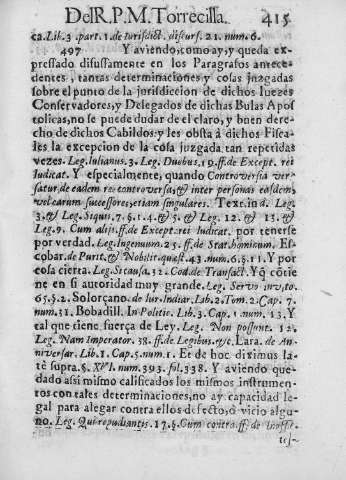 Del R. P. M. Torrecilla. 415
ca. Lib. 3. part. 1. de Iurisdict. discurs. 21. num. 6.
497 Y aviendo, como ay, y queda ex-
pressado difusamente en los Paragrafos antece-
dentes, tantas determinaciones y cosas juzgadas
sobre el punto de la jurisdiccion de dichos Iuezes
Conservadores, y Delegados de dichas Bulas Apos
tolicas, no se puede dudar de el claro, y buen dere-
cho de dichos Cabildos: y les obsta à dichos Fisca-
les la excepcion de la cosa juzgada tan repetidas
vezes. Leg. Iulianus. 3. Leg. Duobus. 19. ff. de Except. rei
Iudicat. Y especialmente, quando Controversia ver-
satur, de eadem re: controversia, & inter personas easdem,
vel earum successores, etiam singulares. Text. in d. Leg.
3. & Leg. Siquis. 7. §. 1. 4. & 5. & Leg. 12. & 13. &
Leg. 9. Cum alijs. ff. de Except. rei Iudicat. por tenerse
por verdad. Leg. Ingenuum. 25. ff. de Stat. hominum. Es-
cobar. de Purit. & Nobilit. quæst. 43. num. 6. §. 11. Y por
cosa cierta. Leg. Si causa. 32. Cod. de Transact. Y q̃ cõtie
ne en si autoridad muy grande. Leg. Servo invito.
65. §. 2. Solorçano. de Iur. Indiar. Lib. 2. Tom. 2. Cap. 7.
num. 51. Bobadill. In Politic. Lib. 3. Cap. 1. num. 13. Y
tal que tiene fuerça de Ley. Leg. Non possunt. 12.
Leg. Nam Imperator. 38. ff. de Legibus. &c. Lara. de An-
niversar. Lib. 1. Cap. 5. num. 1. Et de hoc diximus la-
tè supra. §. XVI. num. 393. fol. 338. Y aviendo que-
dado assi mismo calificados los mismos instrumen-
tos con tales determinaciones, no ay capacidad le-
gal para alegar contra ellos defecto, ò vicio algu-
no. Leg. Qui repudiantis. 17. § Cum contra. ff. de Inoffic.
tes-